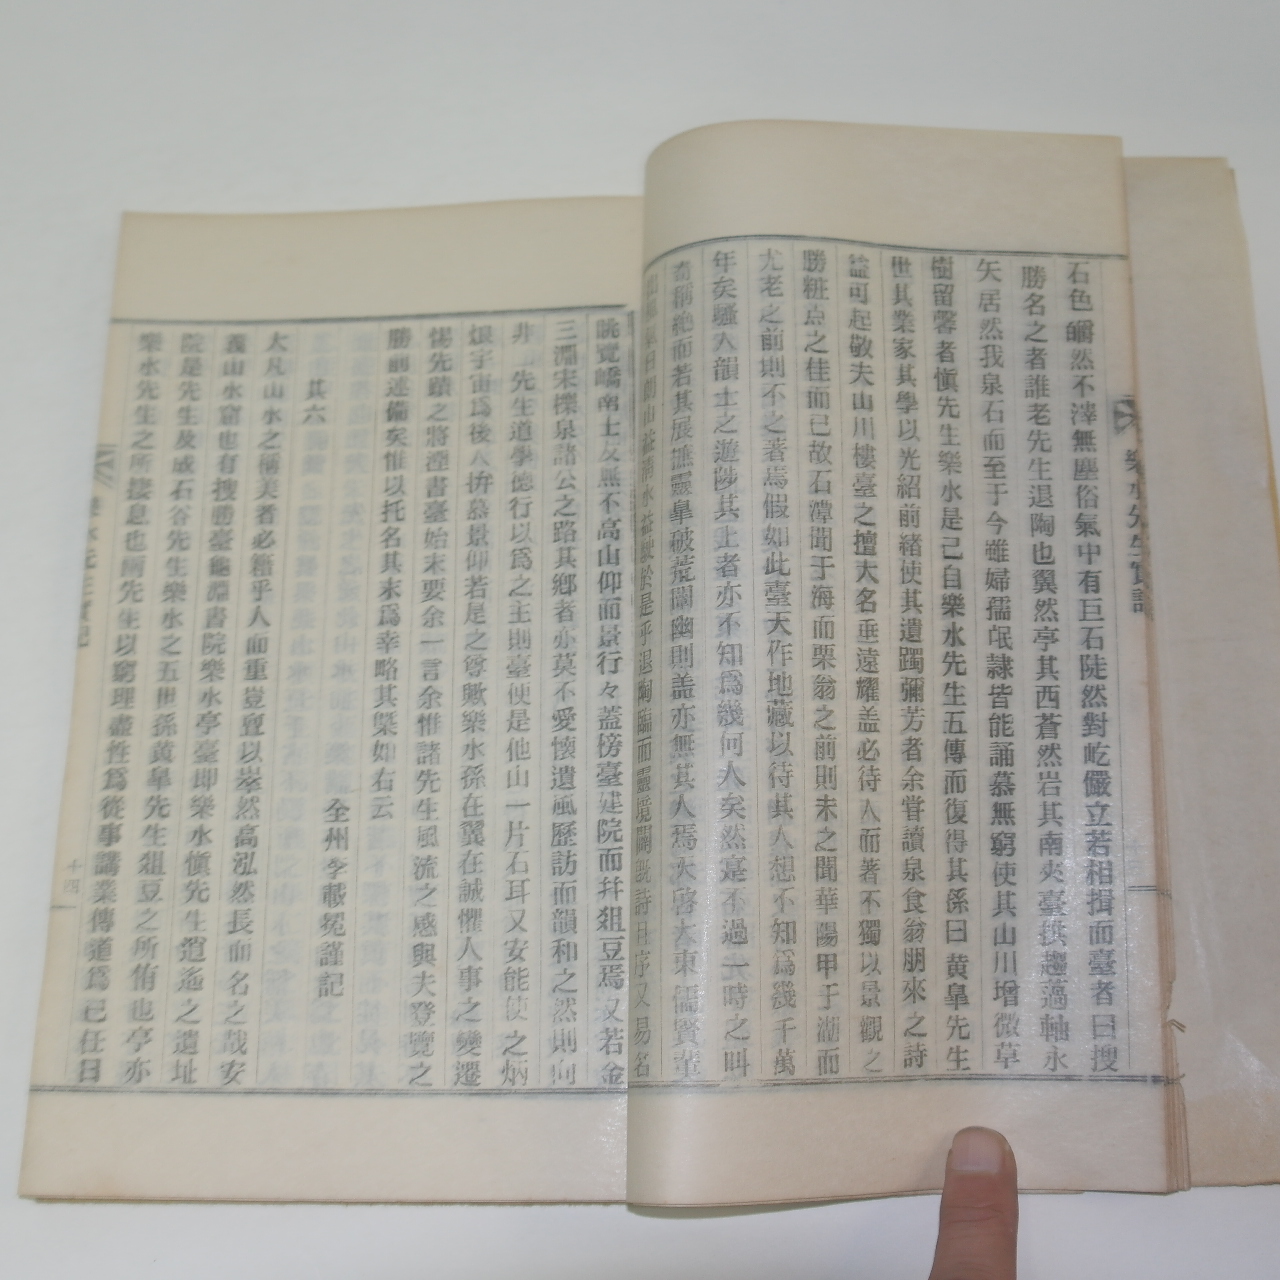 石色皭然不滓無塵俗氣中有巨石陡然對屹儼立若相揖而臺者曰搜
勝名之者誰老先生退陶也翼然亭其西蒼然岩其南夾臺拱趨薖軸永
矢居然我泉石而至于今雖婦孺氓隷皆能誦慕無窮使其山川增微草
樹留馨者愼先生樂水是已自樂水先生五傳而復得其係曰黄皐先生
世其業家其學以光紹前緒使其遺躅彌芳者余甞讀泉食翁朋來之詩
益可起敬夫山川樓臺之擅大名垂遠耀盖必待人而著不獨以景觀之
勝粧点之佳而已故石潭聞于海而栗翁之前則未之聞華陽甲于湖而
尤老之前則不之著焉假如此臺天作地藏以待其人想不知爲幾千萬
年矣騷人韻士之遊陟其上者亦不知爲幾何人矣然寔不過一時之叫
奇稱絶而若其展譙靈皐破荒闡幽則盖亦無其人焉大啓大東儒賢輩
山益 水益 於是乎退陶臨而靈境闢旣詩且序又易名
眺覽嶠南士友無不高山仰而景行々蓋榜臺建院而幷俎豆焉又若金
三淵宋櫟泉諸公之路其鄕者亦莫不愛懷遺風歷訪而韻和之然則向
非 先生道學德行以爲之主則臺便是他山一片石耳又安能使之炳
烺宇宙爲後人拚慕景仰若是之尊歟樂水孫在翼在誠懼人事之變遷
惕先蹟之將湮書臺始末要余一言余惟諸先生風流之感與夫登覽之
勝前述備矣惟以托名其末爲幸略其槩如右云
全州李載冕謹記
其六
大凡山水之稱美者必藉乎人而重豈亶以崒然高泓然長而名之哉安
義山水窟也有搜勝臺龜淵書院樂水亭臺卽樂水愼先生逍遙之遺址
院是先生及成石谷先生樂水之五世孫黄皐先生俎豆之所侑也亭亦
樂水先生之所接息也兩先生以窮理盡性爲從事講業傳道爲己任日
樂水先生實記
十四
樂水先生實記